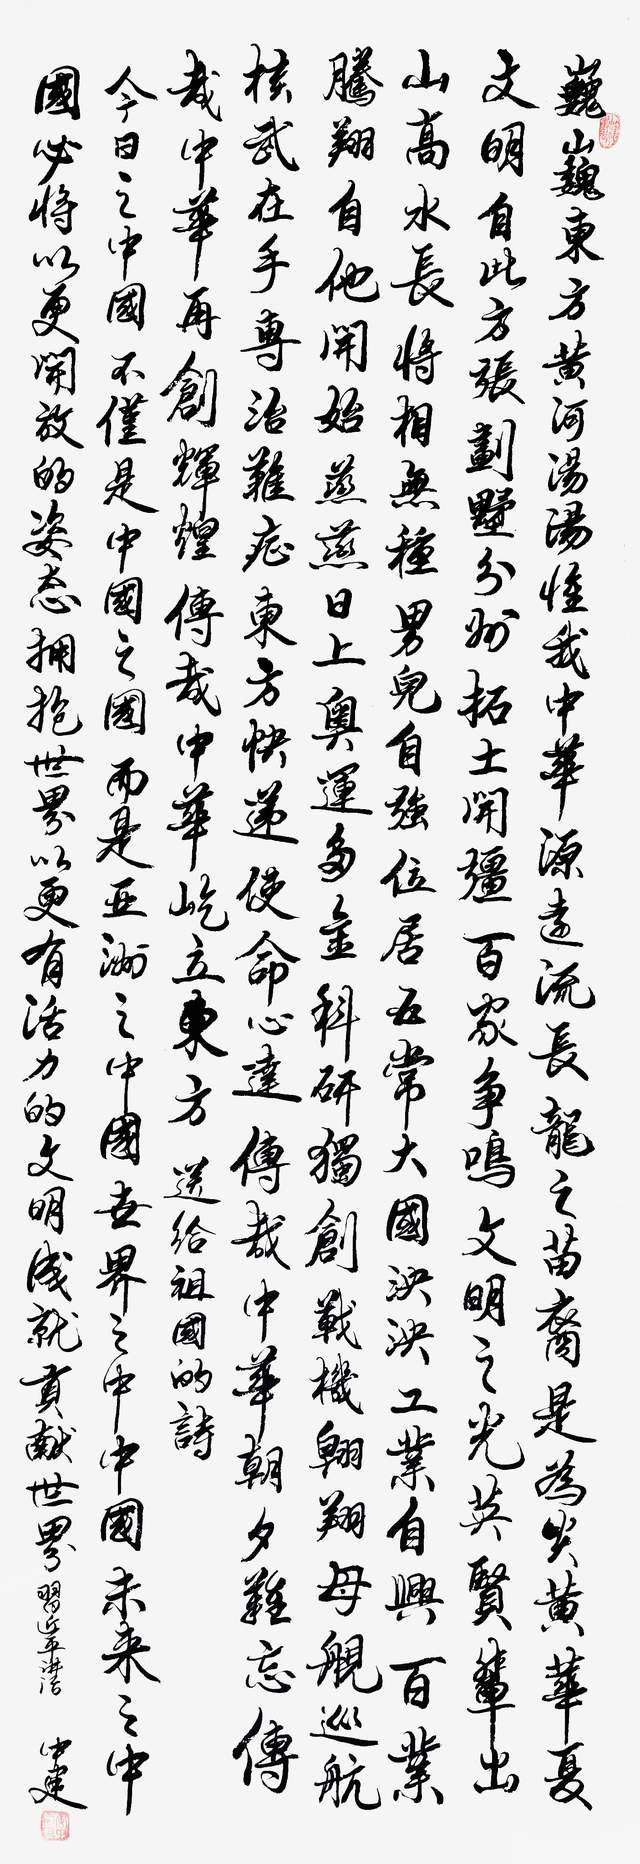 巍巍東方黄河湯湯惟我中華源遠流長龍之苗裔是為炎黄華夏
文明自此方張劃墅分州拓土開疆百家争鳴文明之光英賢輩出
山高水長將相無種男兒自強位居五常大國泱泱工業自興百業
騰翔自他開始蒸蒸日上奥運多金科研獨創戰機翱翔母艦巡航
核武在手專治難症東方快遞使命必達偉哉中華朝夕難忘偉
哉中華再創輝煌偉哉中華屹立東方 送給祖國的詩
今日之中國不僅是中國之國而是亚洲之中國世界之中中國未来之中
國必将以更開放的姿态拥抱世界以更有活力的文明成就貢献世界 習近平講話 中建